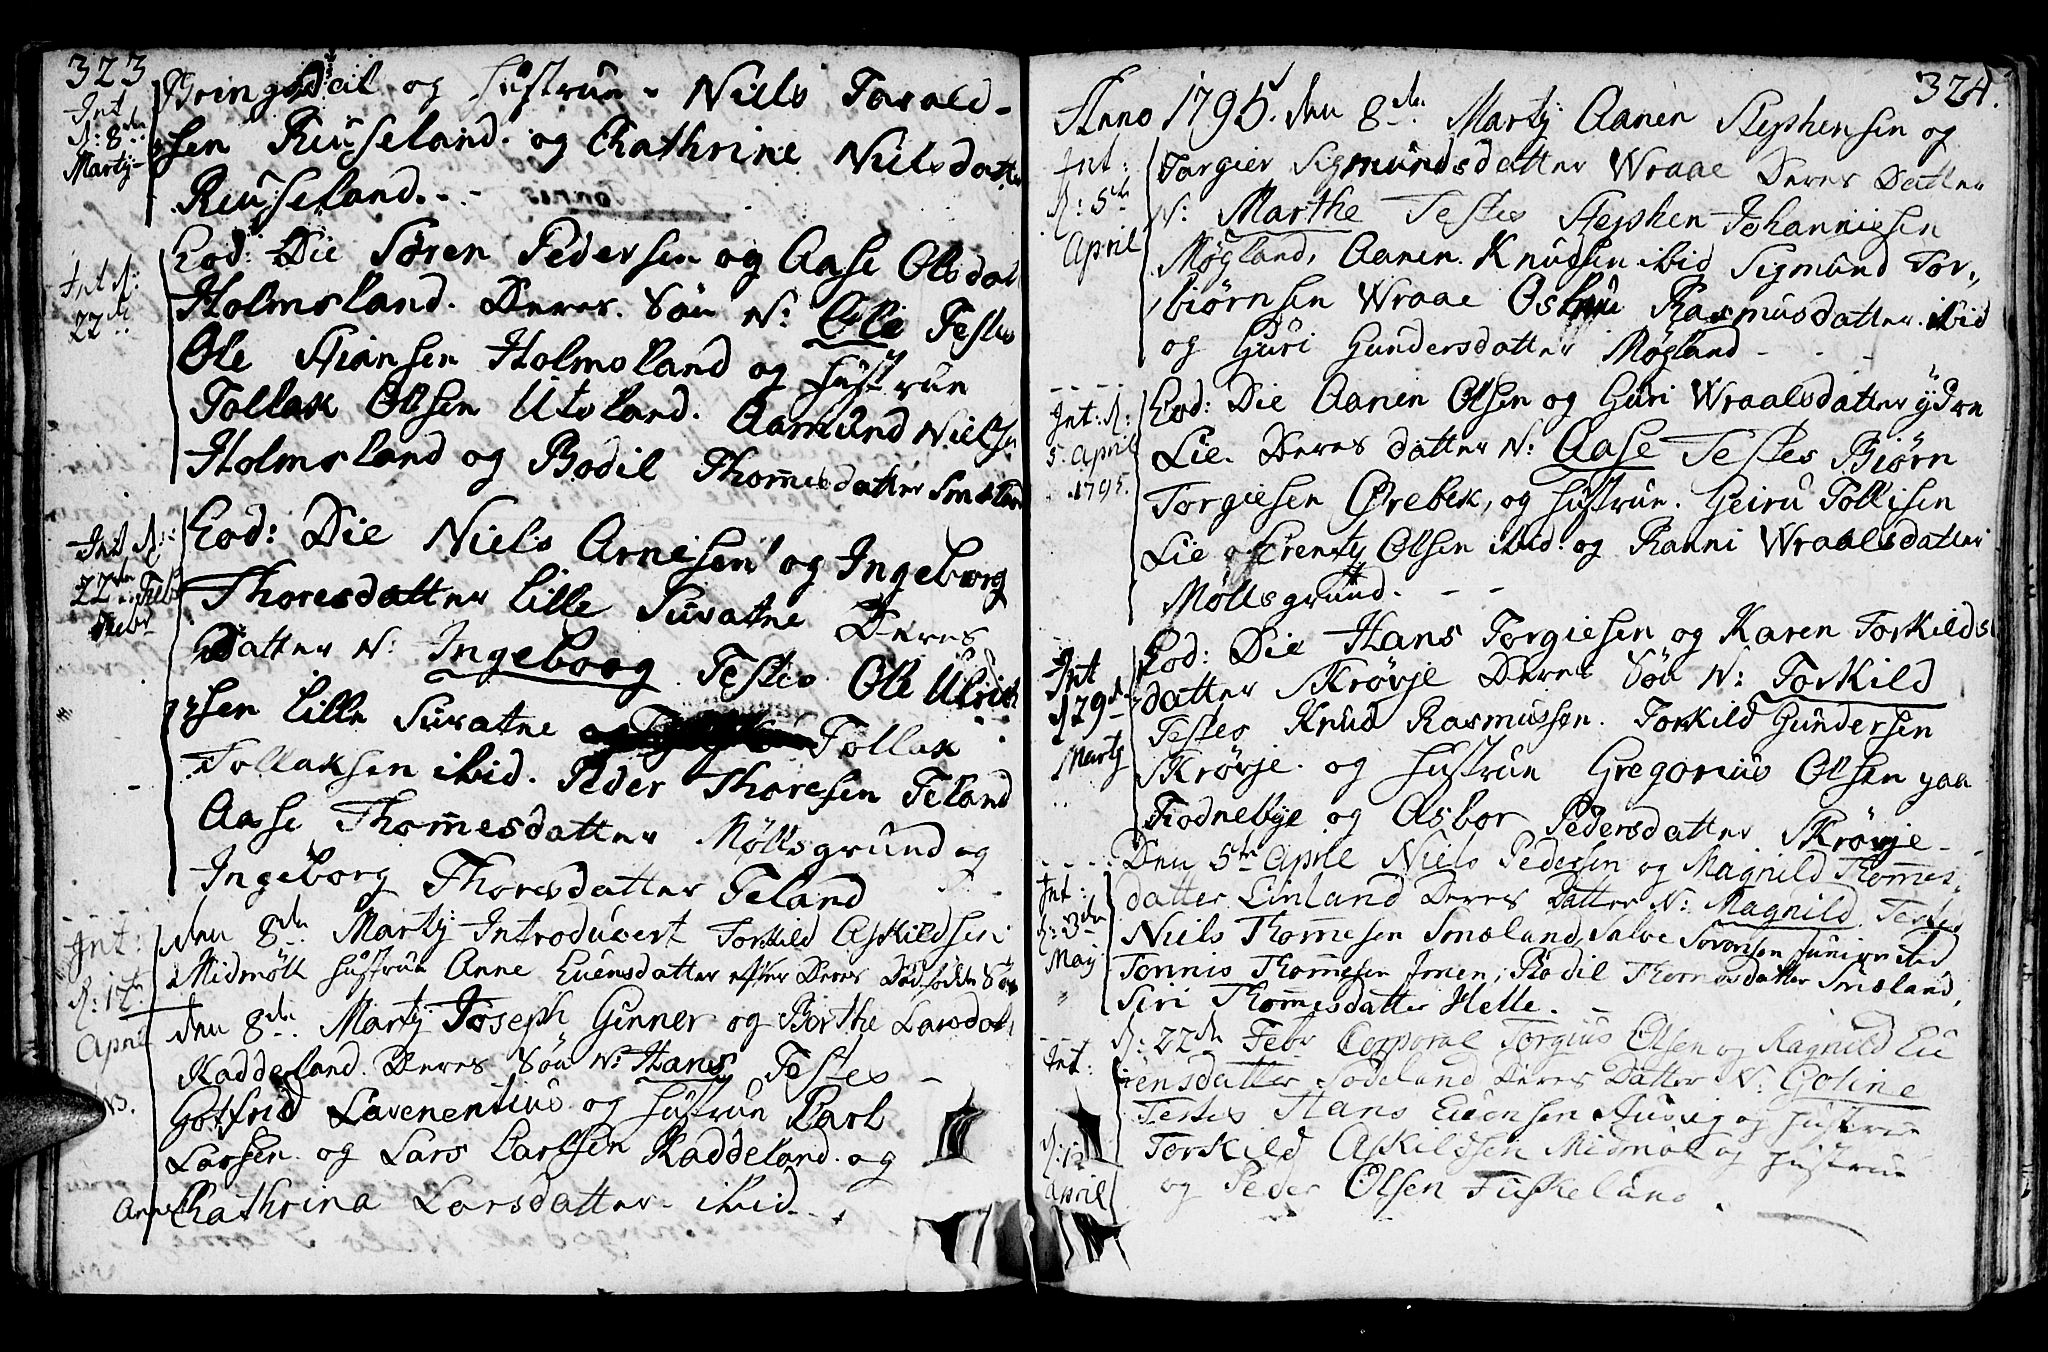 323
Int
d: 8de
Martij
Bringsdal og Hustrue - Niels Tarald-
sen Reuseland. og Cathrine Nielsdatter
Reuseland. - -
Int d:
22de
Eod: Die Søren Pedersen og Aase Olsdat
Holmsland. Deres Søn N: Ole Testes
Ole Stiansen Holmsland og Hustrue
Tollak Olsen Utsland. Aamund Niels
Holmsland og Bodil Thomesdatter Smæland
Int d:
22de Febr
Febr
Eod: Die Niels Arnesen og Ingeborg
Thoresdatter lille Suvatne Deres
Datter N: Ingeborg Testes Ole Ulrich
sen lille Suvatne Tollak
Tollaksen ibid. Peder Thoresen Feland
Aase Thomesdatter Møllsgrund og
Ingeborg Thoresdatter Feland
Int:
d: 12te
April
den 8de Martij Introducert Torkild Askildsen
Midmøll Hustrue Anne Evensdatter efter Deres Dødfødde Søn
den 8de Martij Joseph Ginner og Børthe Larsdatt
Kaddeland. Deres Søn N: Hans Testes -
Gotfrid Lavenentius og Hustrue Karl
Larsen og Lars Carlsen Kaddeland. og
Anne Cathrina Larsdatter ibid. -
324.
Anno 1795. den 8de Martij Aanen Stephensen og
Int:
d: 5te
April
Targier Sigmundsdatter Wraae Deres Datter
N: Marthe Testes Stephen Johannissen
Møgland, Aanen Knudsen ibid Sigmund Tor-
biørnsen Wraae Rasmusdatter ibid
og Guri Gundersdatter Møgland - - -
Int: d:
5 April
1795.
Eod: Die Aanen Olsen og Guri Wraalsdatter ydre
Lie. Deres datter N: Aase Testes Biørn
Torgiesen Ørebek, og Hustrue. Geiru Tollisen
Lie og Trenty Olsen ibid. og Ranni Wraalsdatter
Møllsgrund. - -
Int
d 29de
Martj
Eod: Die Hans Torgiesen og Karen Torkilds
datter Skrøvje Deres Søn N: Torkild
Testes Knud Rasmussøn. Torkild Gundersen
Skrøvje. og Hustrue Gregorius Olsen paa
Fodnebye og Asbor Pedersdatter Skrøvje -
Int:
d: 3de
May
Den 5te April Niels Pedersen og Magnild Thomes-
datter Linland Deres Datter N: Magnild. Testes
Niels Thomesen Smæland, Salve Sørensen Junior ibid
Tønnis Thomesen Imen, Bodil Thomesdatter Smæland,
Siri Thomesdatter Helle.
Int:
d: 12
April
d: 22de Febr Corporal Torgius Olsen og Ragnild Eu
vensdatter Sodeland Deres Datter N: Goline
Testes Hans Evensen og Hustrue
Torkild Askildsen Midmøll og Hustrue
og Peder Olsen Fuskeland.